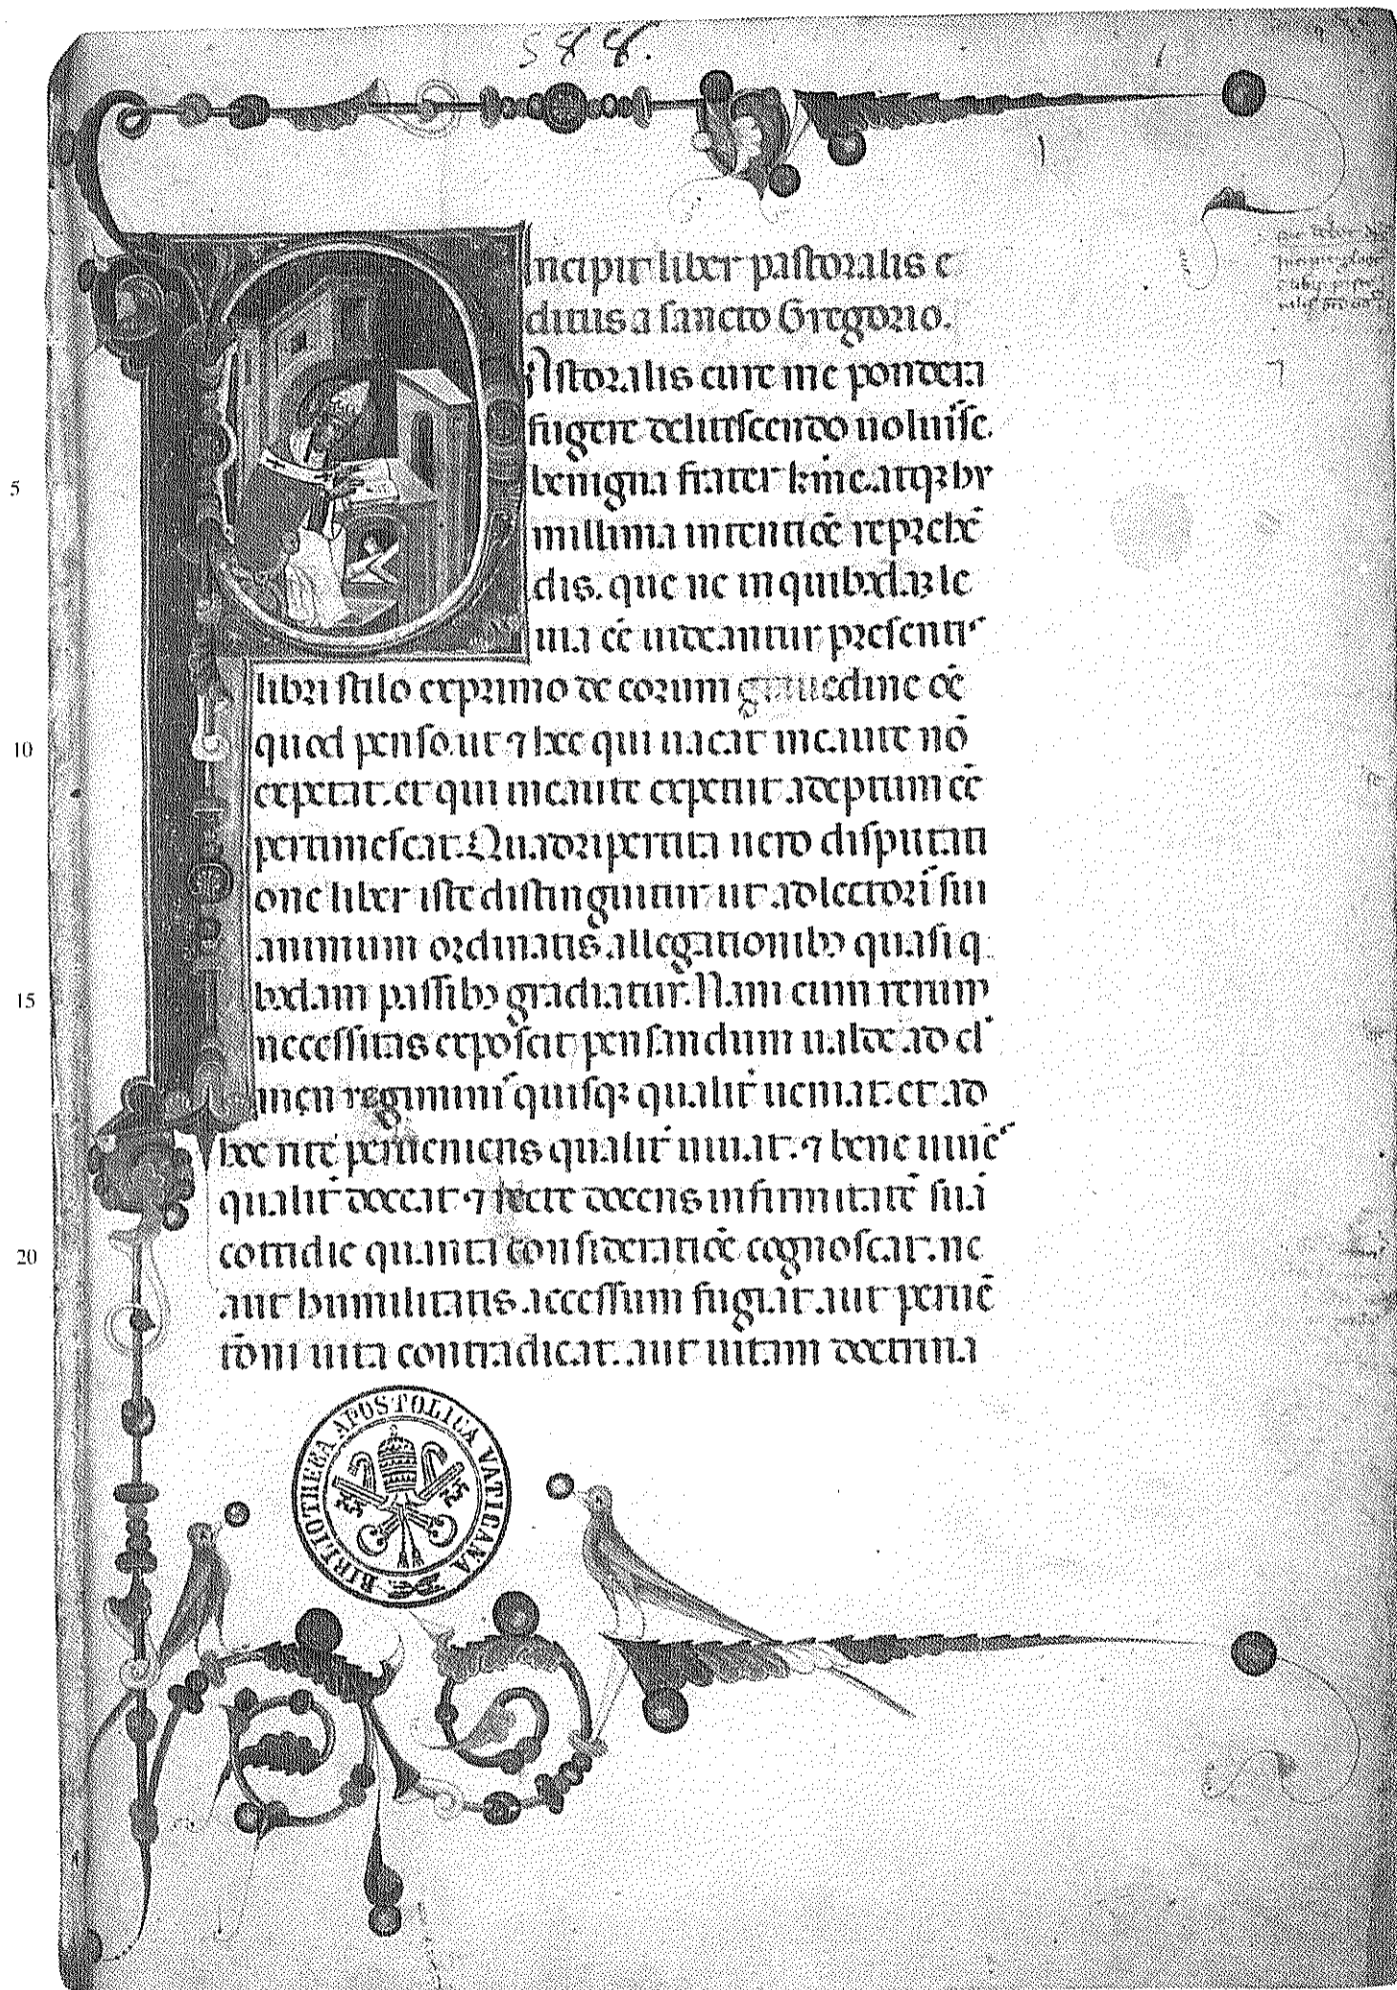 588.
1
Incipit liber pastoralis e
ditus a sancto Gregorio.
PAstoralis cure me pondera
fugere delitescendo uoluisse.
5
benigna frater km̄e. atqꝫ hu
millima intentiōe reprehē
dis. que ne in quibꝰdaꝫ le
uia eē uideantur presentis
libri stilo exprimo de eorum grauedine oē
10
quod penso. ut ⁊ hec qui uacat incaute nō
expetat. et qui incaute expetiit. adeptum eē
pertimescat. Quadripertita uero disputati
one liber iste distinguitur ut ad lectoris sui
animum ordinatis allegationibꝰ quasi q
15
bꝰdam passibꝰ gradiatur. Nam cum rerum
necessitas exposcit pensandum ualde ad cl
men regiminis quisqꝫ qualit̄ ueniat. et ad
hec rite perueniens qualit̄ uiuat. ⁊ bene uiuēs
qualit̄ doceat ⁊ recte docens infirmitatē suā
20
cottidie quanta consideratiōe cognoscat. ne
aut humilitatis accessum fugiat. aut peruē
tōni uita contradicat. aut uitam doctrina
BIBLIOTHECA APOSTOLICA VATICANA